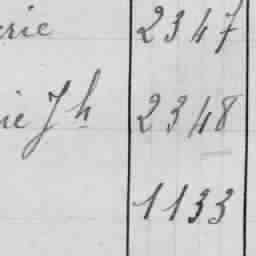 erie 2347
ie Jh 2348
1133